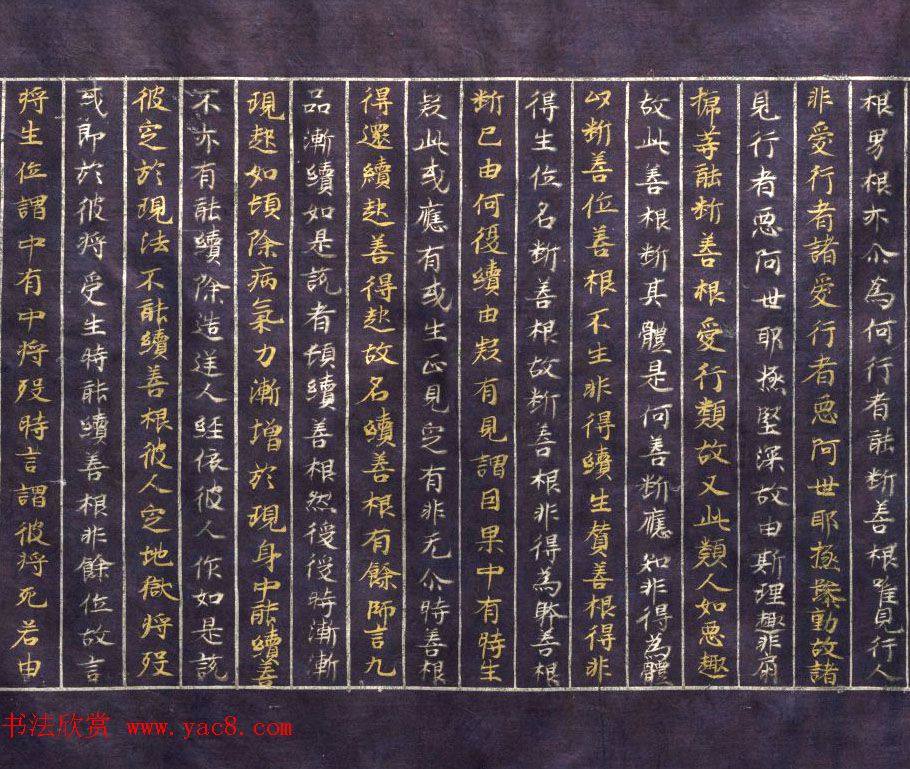 根男根亦尒為何行者能断善根唯見行人
非愛行者諸愛行者惡阿世耶極躁動故諸
見行者惡阿世耶極堅深故由斯理趣非扇
搋等能断善根愛行類故又此類人如惡趣
故此善根断其體是何善断應知非得為體
以断善位善根不生非得續生贊善根得非
得生位名断善根故断善根非得為躰善根
断已由何復續由疑有見謂因果中有時生
疑此或應有或生正見定有非无尒時善根
得還續起善得起故名續善根有餘師言九
品漸續如是説者頓續善根然後後時漸漸
現起如頓除病氣力漸增於現身中能續善
不亦有能續除造逆人經依彼人作如是説
彼定於現法不能續善根彼人定地獄將歿
或即於彼將受生時能續善根非餘位故言
將生位謂中有中將歿時言謂彼將死若由
书法欣赏 www.yac8.com